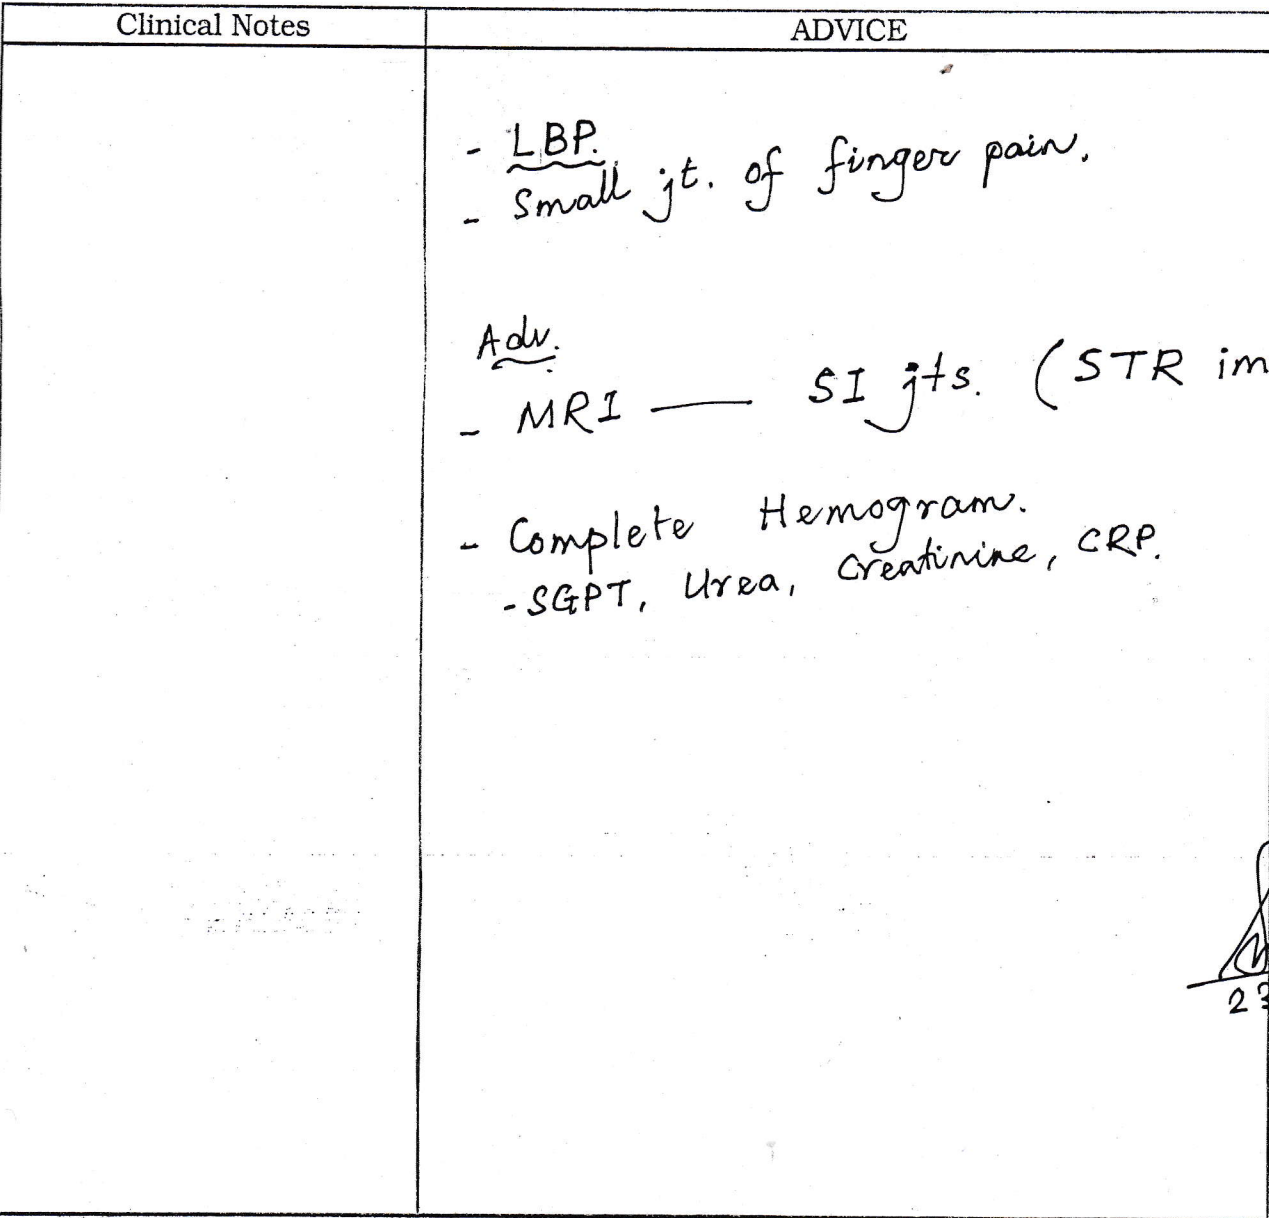 Clinical Notes
ADVICE
- LBP.
- Small jt. of finger pain.
Adv.
- MRI — SI jts. (STR im
- Complete Hemogram.
- SGPT, Urea, Creatinine, CRP.